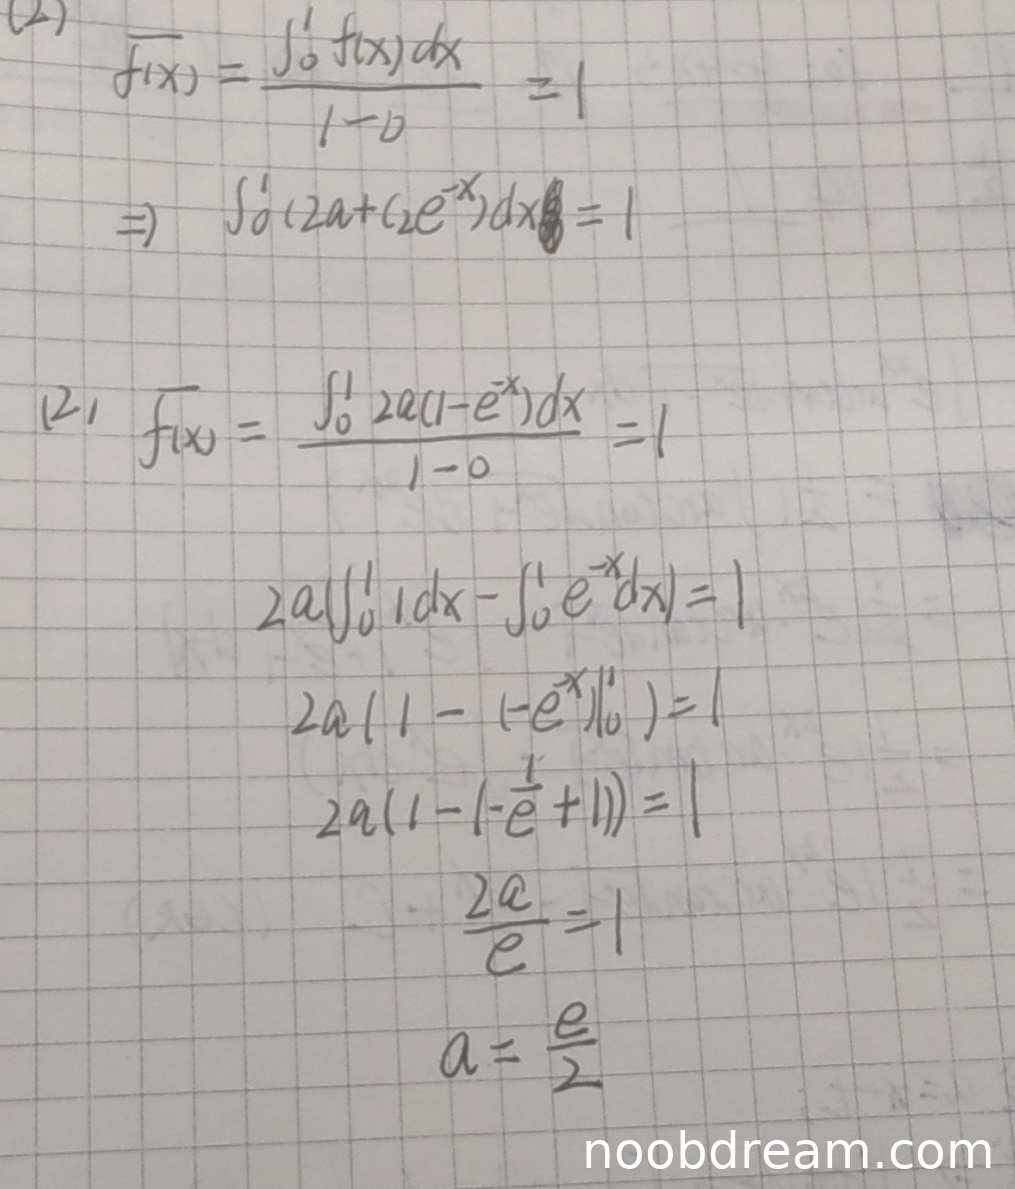 (2)
f(x)‾ = ∫₀¹ f(x) dx / (1-0) = 1
⇒ ∫₀¹ (2a+C₂e^{-x}) dx = 1
(2) f(x)‾ = ∫₀¹ 2a(1-e^{-x}) dx / (1-0) = 1
2a(∫₀¹ 1dx - ∫₀¹ e^{-x}dx) = 1
2a(1 - (-e^{-x})|₀¹) = 1
2a(1-(-1/e+1)) = 1
2a/e = 1
a = e/2
noobdream.com